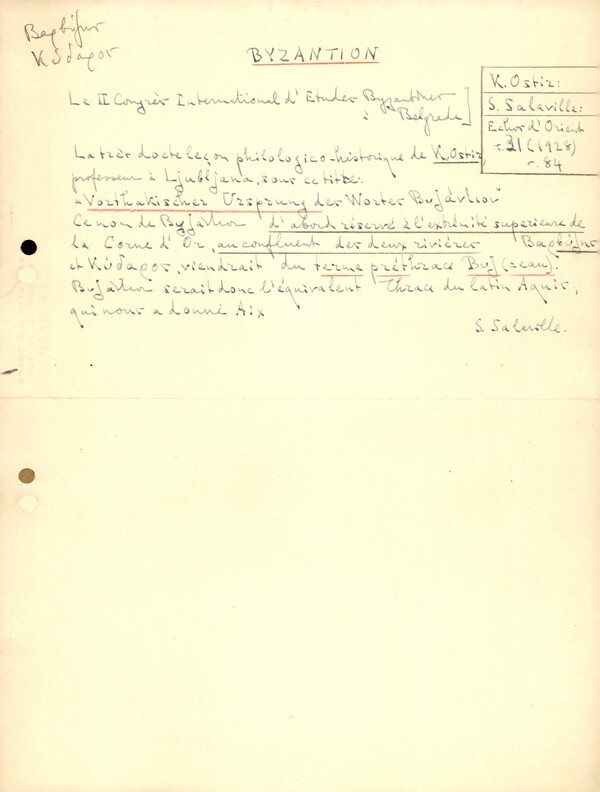 Βαρβύσης
Κύδαρος
BYZANTION
K. Oštir:
S. Salaville:
Echos d'Orient
t. 31 (1928)
p. 84
Le II Congrès International d'Etudes Byzantines
à Belgrade]
La très docte leçon philologico-historique de K. Oštir,
professeur à Ljubljana, sous ce titre:
"Vorthrakischer Ursprung des Wortes Βυζάντιον"
Ce nom de Βυζάντιον d'abord réservé à l'extrémité superieure de
la Corne d'Or, au confluent des deux rivières Βαρβύσης
et Κύδαρος, viendrait du terme préthrace Buz (=eau).
Βυζάντιον serait donc l'équivalent Thrace du latin Aquis,
qui nous a donné Aix
S. Salaville.